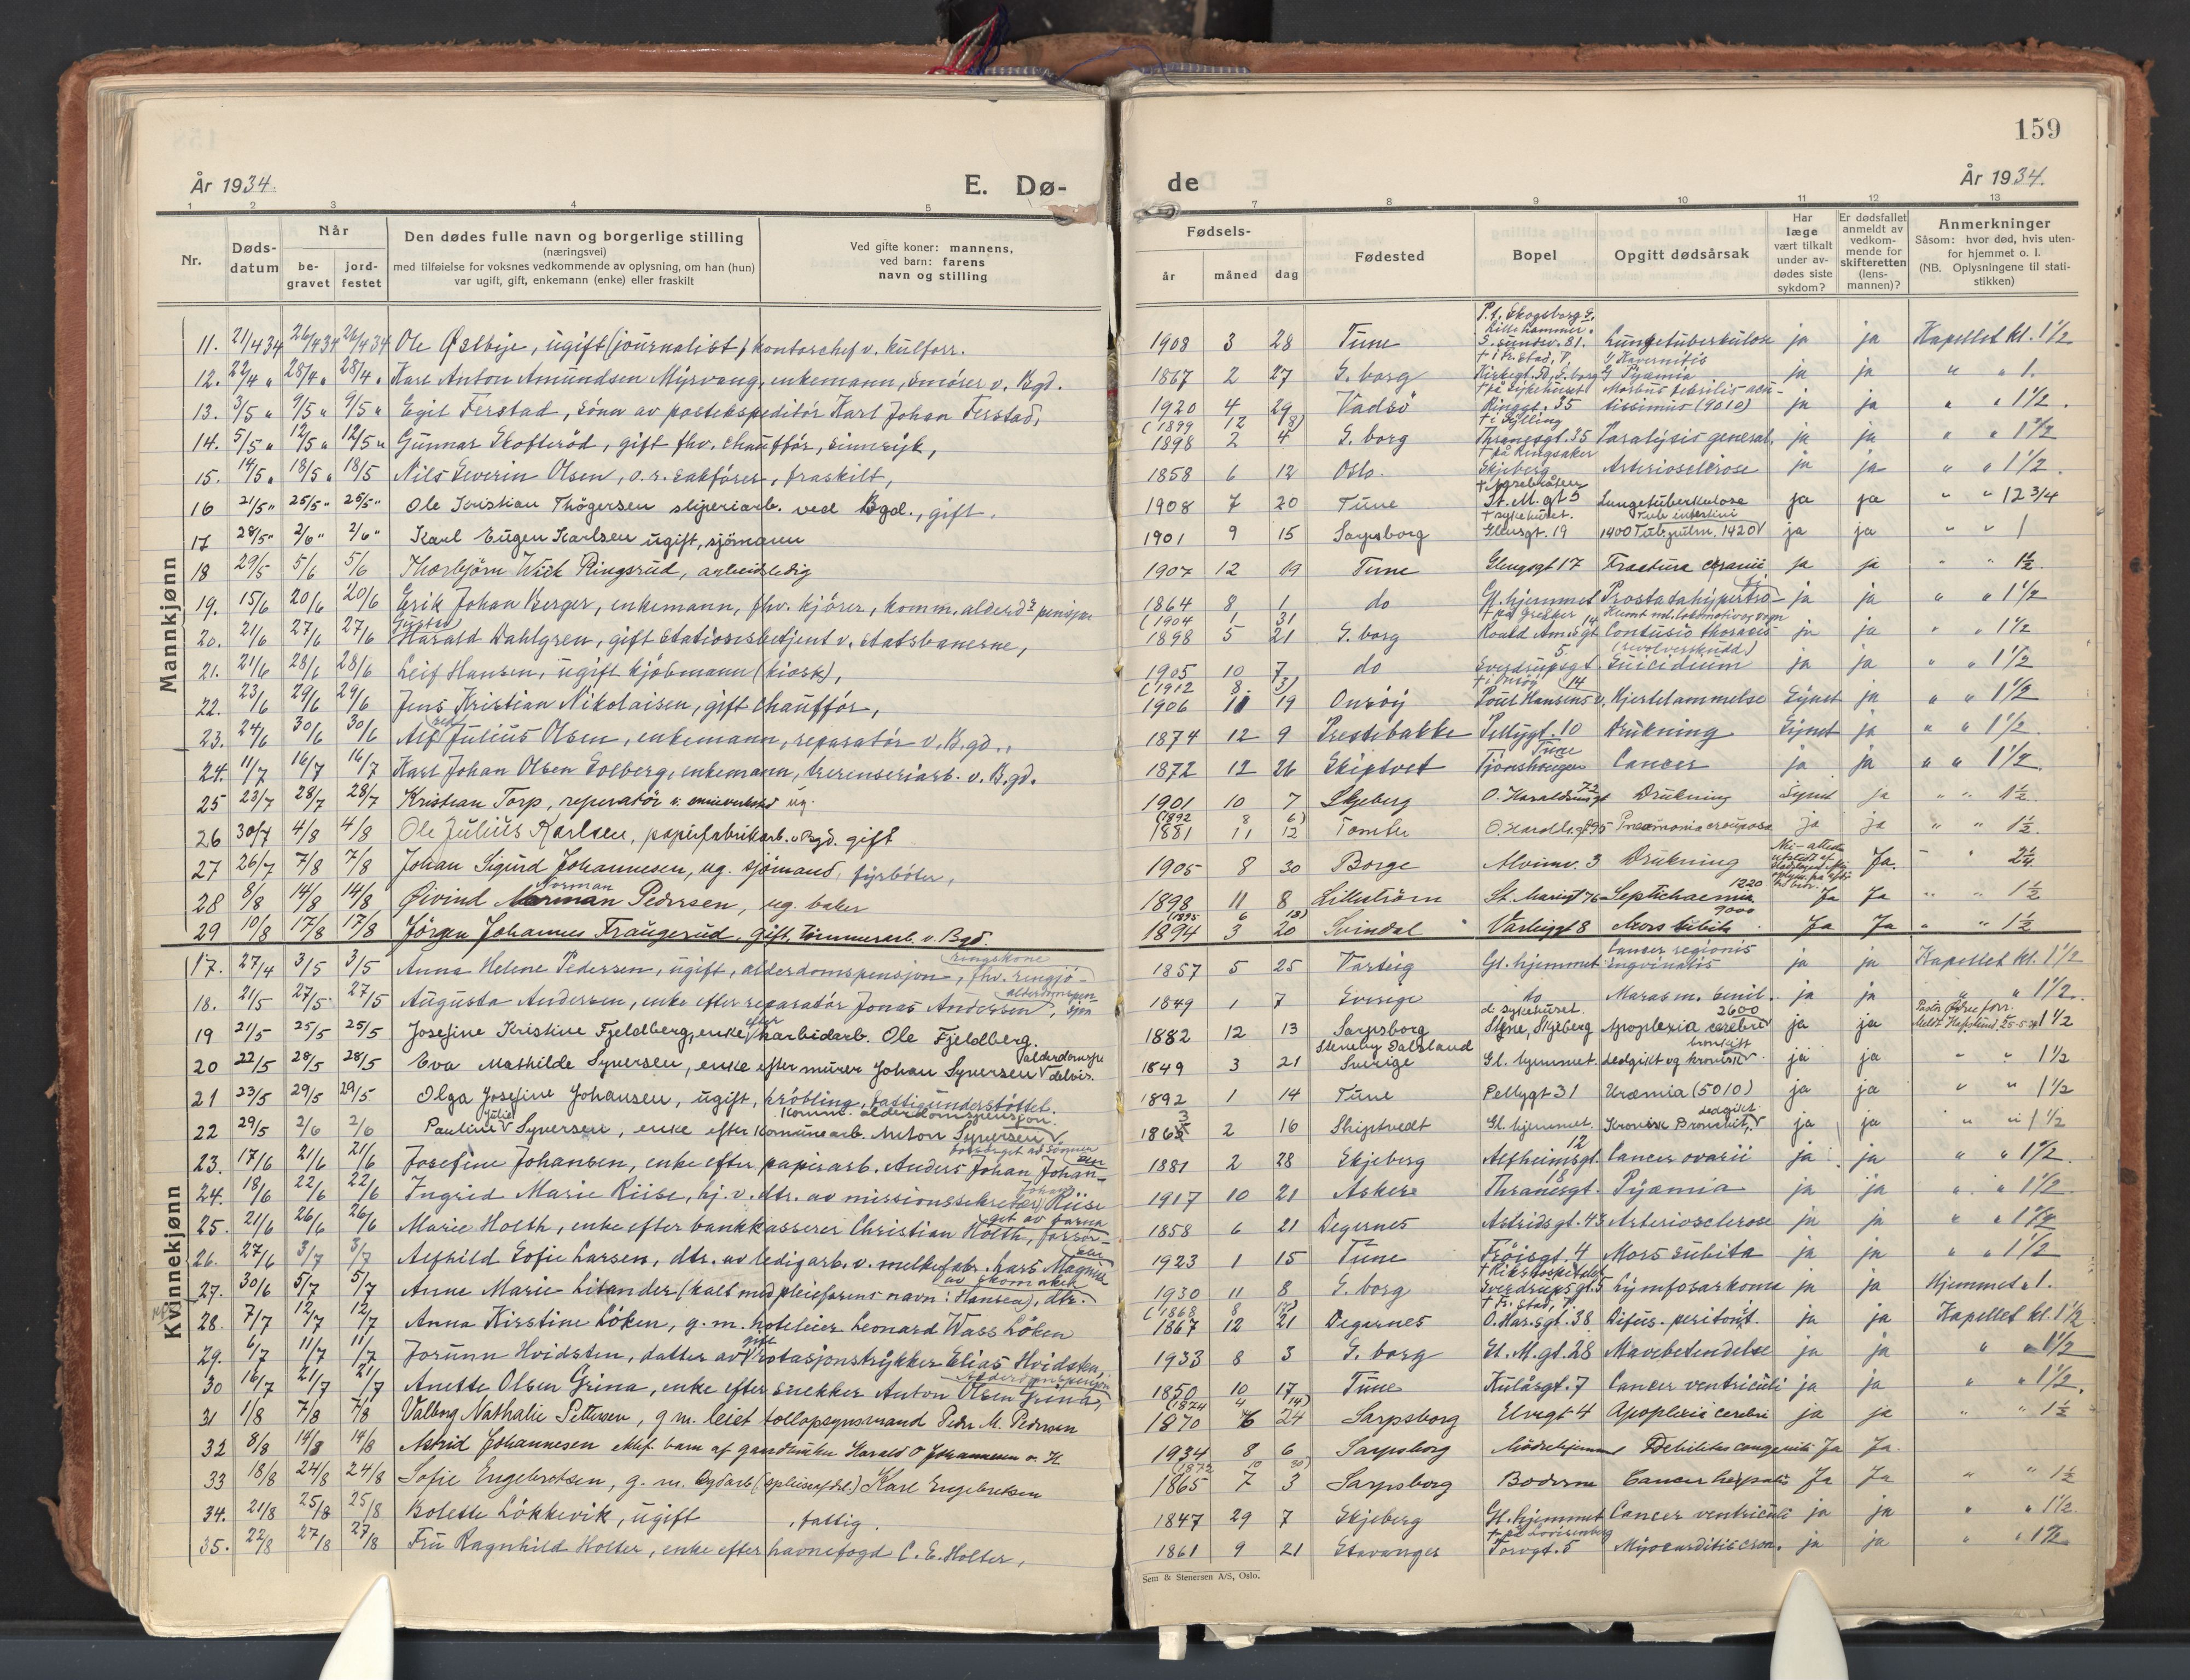 159
År 1934.
E. Dø-
de
År 1934.
1 2 3 4 5 7 8 9 10 11 12 13
Nr.
Døds-
datum
Når
be-
gravet
jord-
festet
Den dødes fulle navn og borgerlige stilling
(næringsvei)
med tilføielse for voksnes vedkommende av oplysning, om han (hun)
var ugift, gift, enkemann (enke) eller fraskilt
Ved gifte koner: mannens,
ved barn: farens
navn og stilling
Fødsels-
år måned dag
Fødested
Bopel
Opgitt dødsårsak
Har
læge
vært tilkalt
under av-
dødes siste
sykdom?
Er dødsfallet
anmeldt av
vedkom-
mende for
skifteretten
(lens-
mannen)?
Anmerkninger
Såsom: hvor død, hvis uten-
for hjemmet o. l.
(NB. Oplysningene til stati-
stikken)
Mannkjønn
11. 21/4 34 26/4 34 26/4 34 Ole Østbye, ugift (journalist) kontorchef v. kulforr. 1908 3 28 Tune Lungetuberkulose ja ja Kapellet kl. 1 1/2
12. 22/4 " 28/4 " 28/4 " Karl Anton Amundsen Myrvang, enkemann, smører v. Bgd. 1867 2 27 S. borg Pyæmia ja ja " " 1.
13. 3/5 " 9/5 " 9/5 " Egil Ferstad, sønn av postekspeditør Karl Johan Ferstad, 1920 4 29 Vadsö Ringgt. 35 ja ja " " 1 1/2.
14. 5/5 " 12/5 " 12/5 " Gunnar Skofteröd, gift fhv. chauffør, sinnsyk, (1899 12 8) 1898 2 4 S. borg Thranesgt. 35 Paralysis general. ja ja " " 1 1/2
15. 14/5 " 18/5 " 18/5 Nils Severin Olsen, o.r. sakfører, fraskilt, 1858 6 12 Oslo. Skjeberg Arteriosclerose ja ja " " 1 1/2.
16 21/5 " 25/5 " 25/5 " Ole Kristian Thögersen sliperiarb. ved Bgd., gift. 1908 7 20 Tune St. M. gt 5 Lungetuberkulose ja ja " " 12 3/4
17 28/5 " 2/6 " 2/6 " Karl Eugen Karlsen ugift, sjömann 1901 9 15 Sarpsborg Glengsgt. 19 1400 Tub. pulm. 1420 ja ja " " 1
18 29/5 5/6 5/6 Thorbjörn Wiik Ringsrud, arbeidsledig 1907 12 19 Tune Glengsgt 17 Fractura cranii ja ja " " 1 1/2
19. 15/6 20/6 20/6 Erik Johan Berger, enkemann, fhv. kjører, komm. alderds pensjon 1864 8 1 do Gl. hjemmet Prostatahypertrofi ja ja " " 1 1/2
20. 21/6 27/6 27/6 Gustav Harald Dahlgren, gift stasjonsbetjent v. statsbanerne, (1904 1 31 1898 5 21 S. borg Roald Am.sgt 14 Contusio thoracis ja ja " " 1 1/2
21. 21/6 28/6 28/6 Leif Hansen, ugift kjøbmann (kiosk), 1905 10 7 do Sverdrupsgt. 5. Suicidium (revolverskudd) ja ja " " 1 1/2
22. 23/6 29/6 29/6 Jens Kristian Nikolaisen, gift chauffør, (1912 8. 3) 1906 11 19 Onsöy Poul Hansens v. 14 Hjertelammelse Synet ja " " 1 1/2
23. 24/6 30/6 30/6 Alf Julius Olsen, enkemann, reparatør v. B.gd., 1874 12 9 Prestebakke Pellygt. 10 Drukning Synet ja " " 1 1/2.
24. 11/7 16/7 16/7 Karl Johan Olsen Solberg, enkemann, tverenseriarb. v. B.gd. 1872 12 26 Skiptvet Tjonshaugen Tune Cancer ja ja " " 1 1/2.
25 23/7 28/7 28/7 Kristian Torp, reperatör ug. 1901 10 7 Skjeberg Drukning Synet ja " " 1 1/2
26 30/7 4/8 4/8 Ole Julius Karlsen, papirfabrikarb. v. Bgd. gift (1892 8 6) 1881 11 12 Tomter O. Haralds.gt 95 Pneumonia crouposa ja ja " " 1 1/2
27 26/7 7/8 7/8 Johan Sigurd Johannesen, ug. sjömand, fyrböter, 1905 8 30 Borge Alvimv. 3 Drukning Ja. " " 2 1/4
28 8/8 14/8 14/8 Øivind Norman Pedersen, ug. baker 1898 11 8 Lilleström St. Mariegt 76 Septichaemia 1220 Ja Ja " " 1 1/2
29 10/8 17/8 17/8 Jörgen Johannes Fraugerud, gift, tømmerarb. v. Bgd. (1895 6 18) 1894 3 20 Svindal Varteiggt 8 Mors subita 9000 Ja Ja " " 1 1/2
Kvinnekjønn
17. 27/4 3/5 3/5 Anna Helene Pedersen, ugift, alderdomspensjon, fhv. ringjö- ringskone 1857 5 25 Varteig Gl. hjemmet Cancer regionis ingvinalis ja ja Kapellet kl. 1 1/2
18. 21/5 27/5. 27/5 Augusta Andersen, enke efter reparatør Jonas Andersen, alderdomspen- sjon 1849 1 7 Sverige do Marasm. senil. ja ja " " 1 1/2.
19 21/5 25/5 25/5 Josefine Kristine Fjeldberg, enke efter karbidarb. Ole Fjeldberg. 1882 12 13 Sarpsborg d. sykehuset. Skjeberg Apoplexia cerebri 2600 ja ja 1 1/2
20 22/5 28/5 28/5 Eva Mathilde Syversen, enke efter murer Johan Syversen 1849 3 21 Steneby Dalsland Sverige Gl. hjemmet ja ja " " 1 1/2
21 23/5 29/5 29/5 Olga Josefine Johansen, ugift, kröbling, fattigunderstöttet. 1892 1 14 Tune Pellygt 31 Uræmia (5010) ja ja " " 1 1/2
22 29/5 2/6 2/6 Pauline Julie Syversen, enke efter komunearb. Anton Syversen Komm. alderdomspensjon. 1863 2 16 Skiptvedt Gl. hjemmet. Kronisk Bronchit, ja ja " " 1 1/2
23. 17/6 21/6 21/6 Josefine Johansen, enke efter papirarb. Anders Johan Johan- sen 1881 2 28 Skjeberg Alfheimsgt. 12 Cancer ovarii ja ja " " 1 1/2.
24. 18/6 22/6 22/6 Ingrid Marie Riise, hj. v. dtr. av missionssekretær Johan Riise 1917 10 21 Asker Thranesgt. 18 Pyæmia ja ja " " 1 1/2
25. 21/6 26/6 26/6 Marie Holth, enke efter bankkasserer Christian Holth, forsør- get av barna 1858 6 21 Degernes Astridsgt. 43 Arteriosclerose ja ja " " 1 1/2
26. 27/6 3/7 3/7 Alfhild Sofie Larsen, dtr. av ledigarb. v. melkefabr. Magnus Lar- 1923 1 15 Tune Fröisgt. 4 Mors subita ja ja " " 1 1/2
27. 30/6 5/7 5/7 Anne Marie Litander (kalt med pleiefarens navn: Hansen), dtr. av skomaker 1930 11 8 S. borg † Rikshospitalet Sverdrupsgt. 5 Lymfosarkoma ja ja Hjemmet " 1.
28. 7/7 12/7 12/7 Anna Kirstine Löken, g. m. hoteleier Leonard Wass Löken (1868 8 1867 12 21 Degernes † Fr.stad, O. Har.sgt. 38 Difus. peritonit. ja ja Kapellet kl. 1 1/2
29. 6/7 11/7 11/7 Jorunn Hvidsten, datter av gift rotasjonstrykker Elias Hvidsten, 1933 8 3 S. borg St. M. gt. 28 Mavebetendelse ja ja " " 1 1/2
30 16/7 21/7 21/7 Anette Olsen Grina, enke efter snekker Anton Olsen Grina, Alderdomspensjon 1850 10 17 Tune Kulåsgt. 7 Cancer ventriculi ja ja " " 1 1/2.
31 1/8 7/8 7/8 Valborg Nathalie Pettersen, g. m. leiet tollopsynsmand Peder M. Pedersen (1874 4 14) 1870 6 24 Sarpsborg Elvegt 4 Apoplexia cerebri ja ja " " 1 1/2
32 8/8 14/8 14/8 Astrid Johannesen Harald O Johannesen 1934 8 6 Sarpsborg Mödrehjemmet Debilitas congenita Ja Ja.
33 18/8 24/8 24/8 Sofie Engebretsen, g. m. Bgdarb Karl Engebretsen (1872 10 30) 1865 7 3 Sarpsborg Cancer hepatis Ja Ja " " 1 1/2
34. 21/8 25/8 25/8 Bolette Lökkevik, ugift , fattig. 1847 29 7 Skjeberg Gl. hjemmet Cancer ventriculi ja ja " " 1 1/2
35. 22/8 27/8 27/8 Fru Ragnhild Holter, enke efter havnefogd C. E. Holter, 1861 9 21 Stavanger † på Lovisenberg Torvgt. 5 Myocarditis cron. ja ja " " 1 1/2
Sem & Stenersen A/S, Oslo.